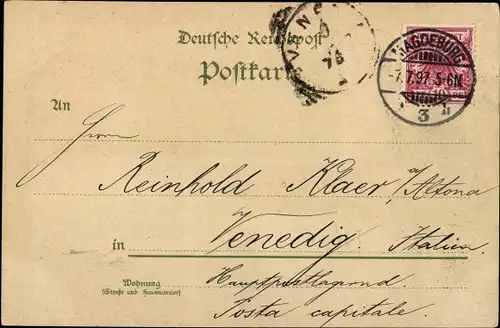 Deutsche Reichspost
Postkarte
MAGDEBURG
7.7.97.5-6N
3
An
Herrn
Reinhold Klaer, a/Altona
in Venedig. Italien.
Wohnung
(Straße und Hausnummer)
Hauptpostlagernd
Posta capitale.